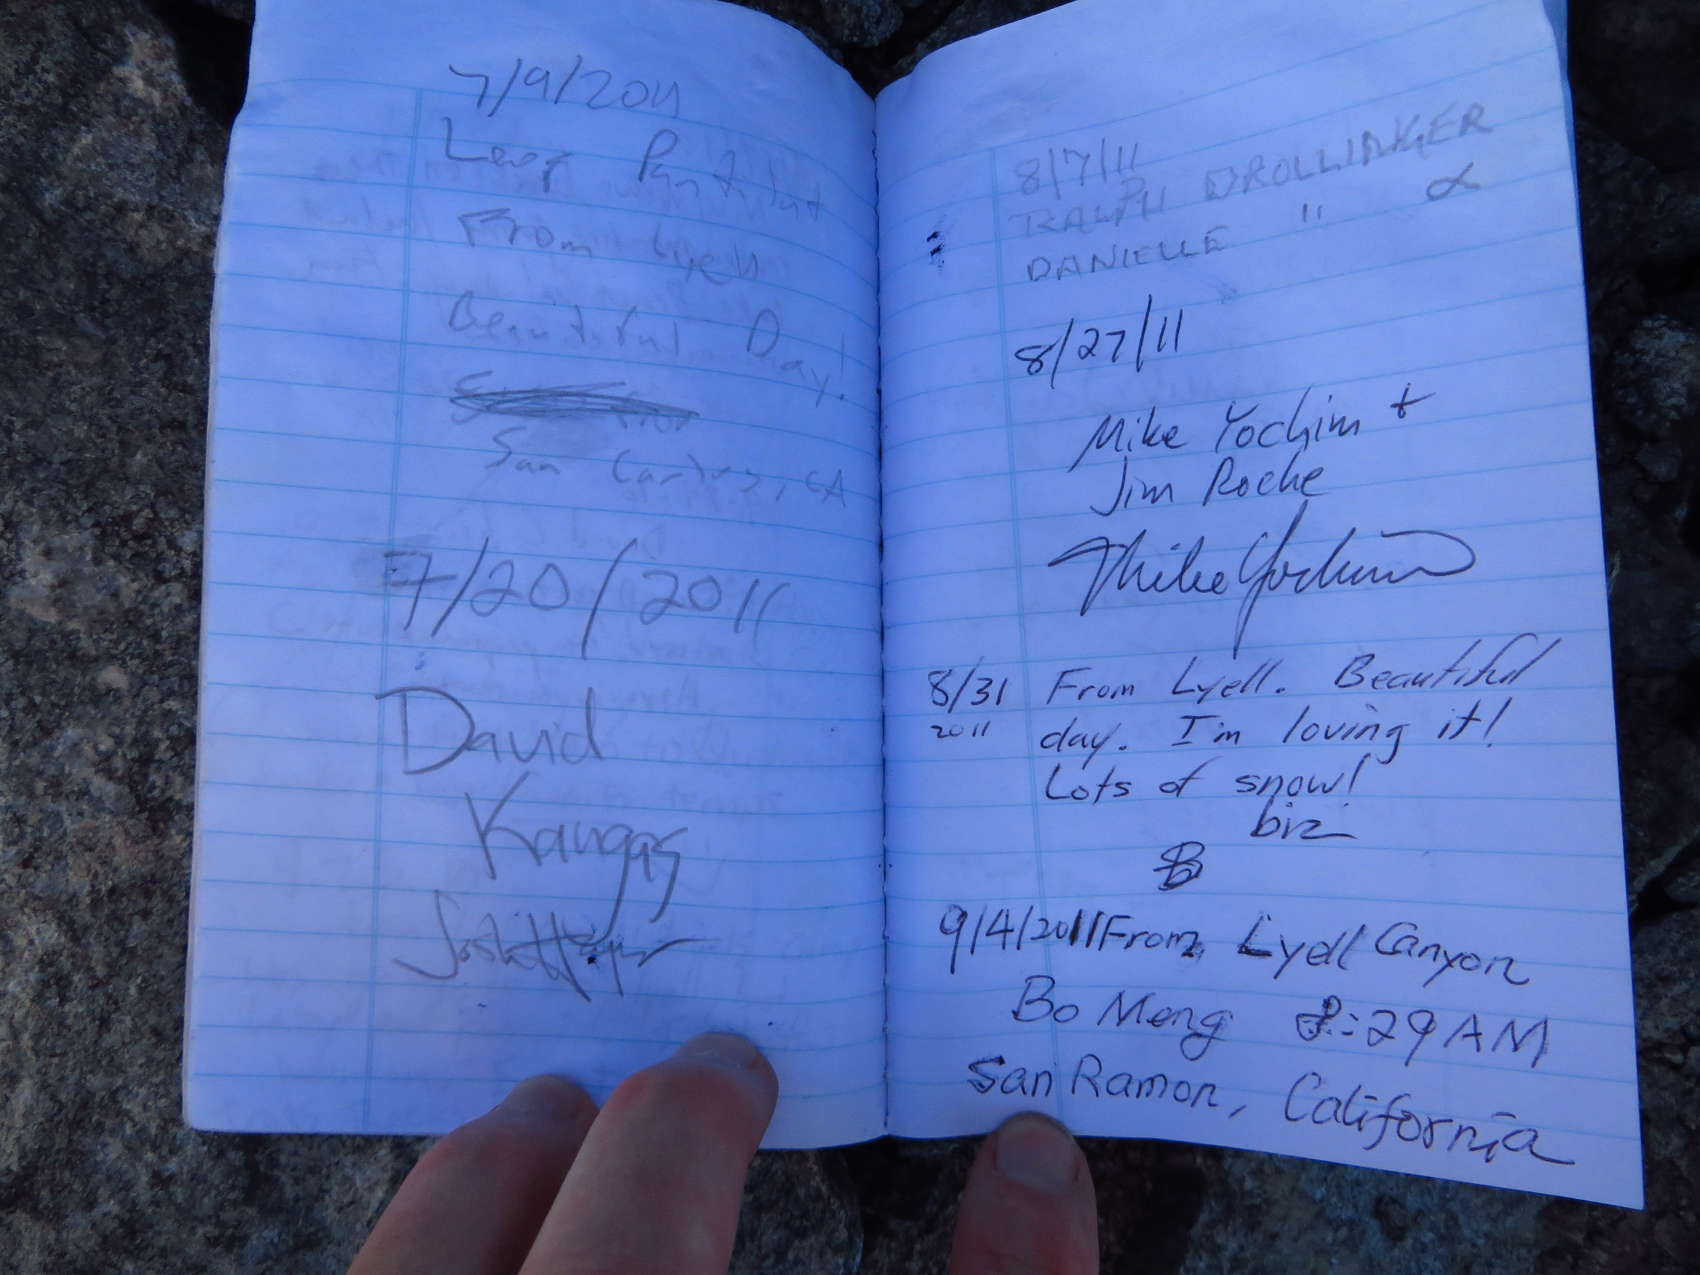 7/9/2011
From Lyell
Beautiful Day!
San Carlos, CA
7/20/2011
David
Kangas
8/7/11
RALPH DROLLINGER
DANIELLE " α
8/27/11
Mike Yochim +
Jim Roche
Mike Yochim
8/31 From Lyell. Beautiful
2011 day. I'm loving it!
Lots of snow!
biz
B
9/4/2011 From Lyell Canyon
Bo Meng 8:29 AM
San Ramon, California